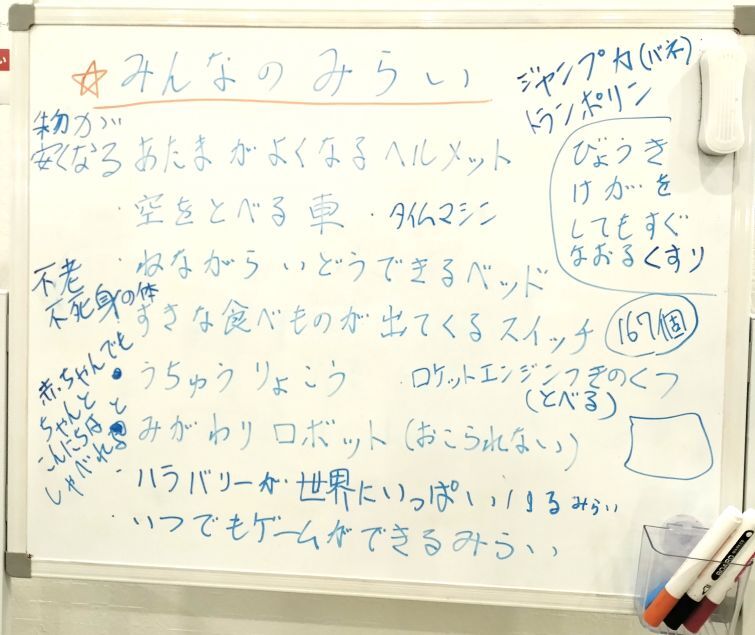 ☆みんなのみらい
ジャンプ力(バネ)
トランポリン
物が
安くなる
あたまがよくなるヘルメット
・空をとべる車
・タイムマシン
びょうき
けがを
してもすぐ
なおるくすり
・ねながらいどうできるベッド
不老
不死身の体
・すきな食べものが出てくるスイッチ
167個
赤ちゃんでも
ちゃんと
こんにちはと
しゃべれる
・うちゅうりょこう
・ロケットエンジンつきのくつ
(とべる)
・みがわりロボット(おこられない)
・ハラバリーが世界にいっぱいいるみらい
・いつでもゲームができるみらい
BOARD